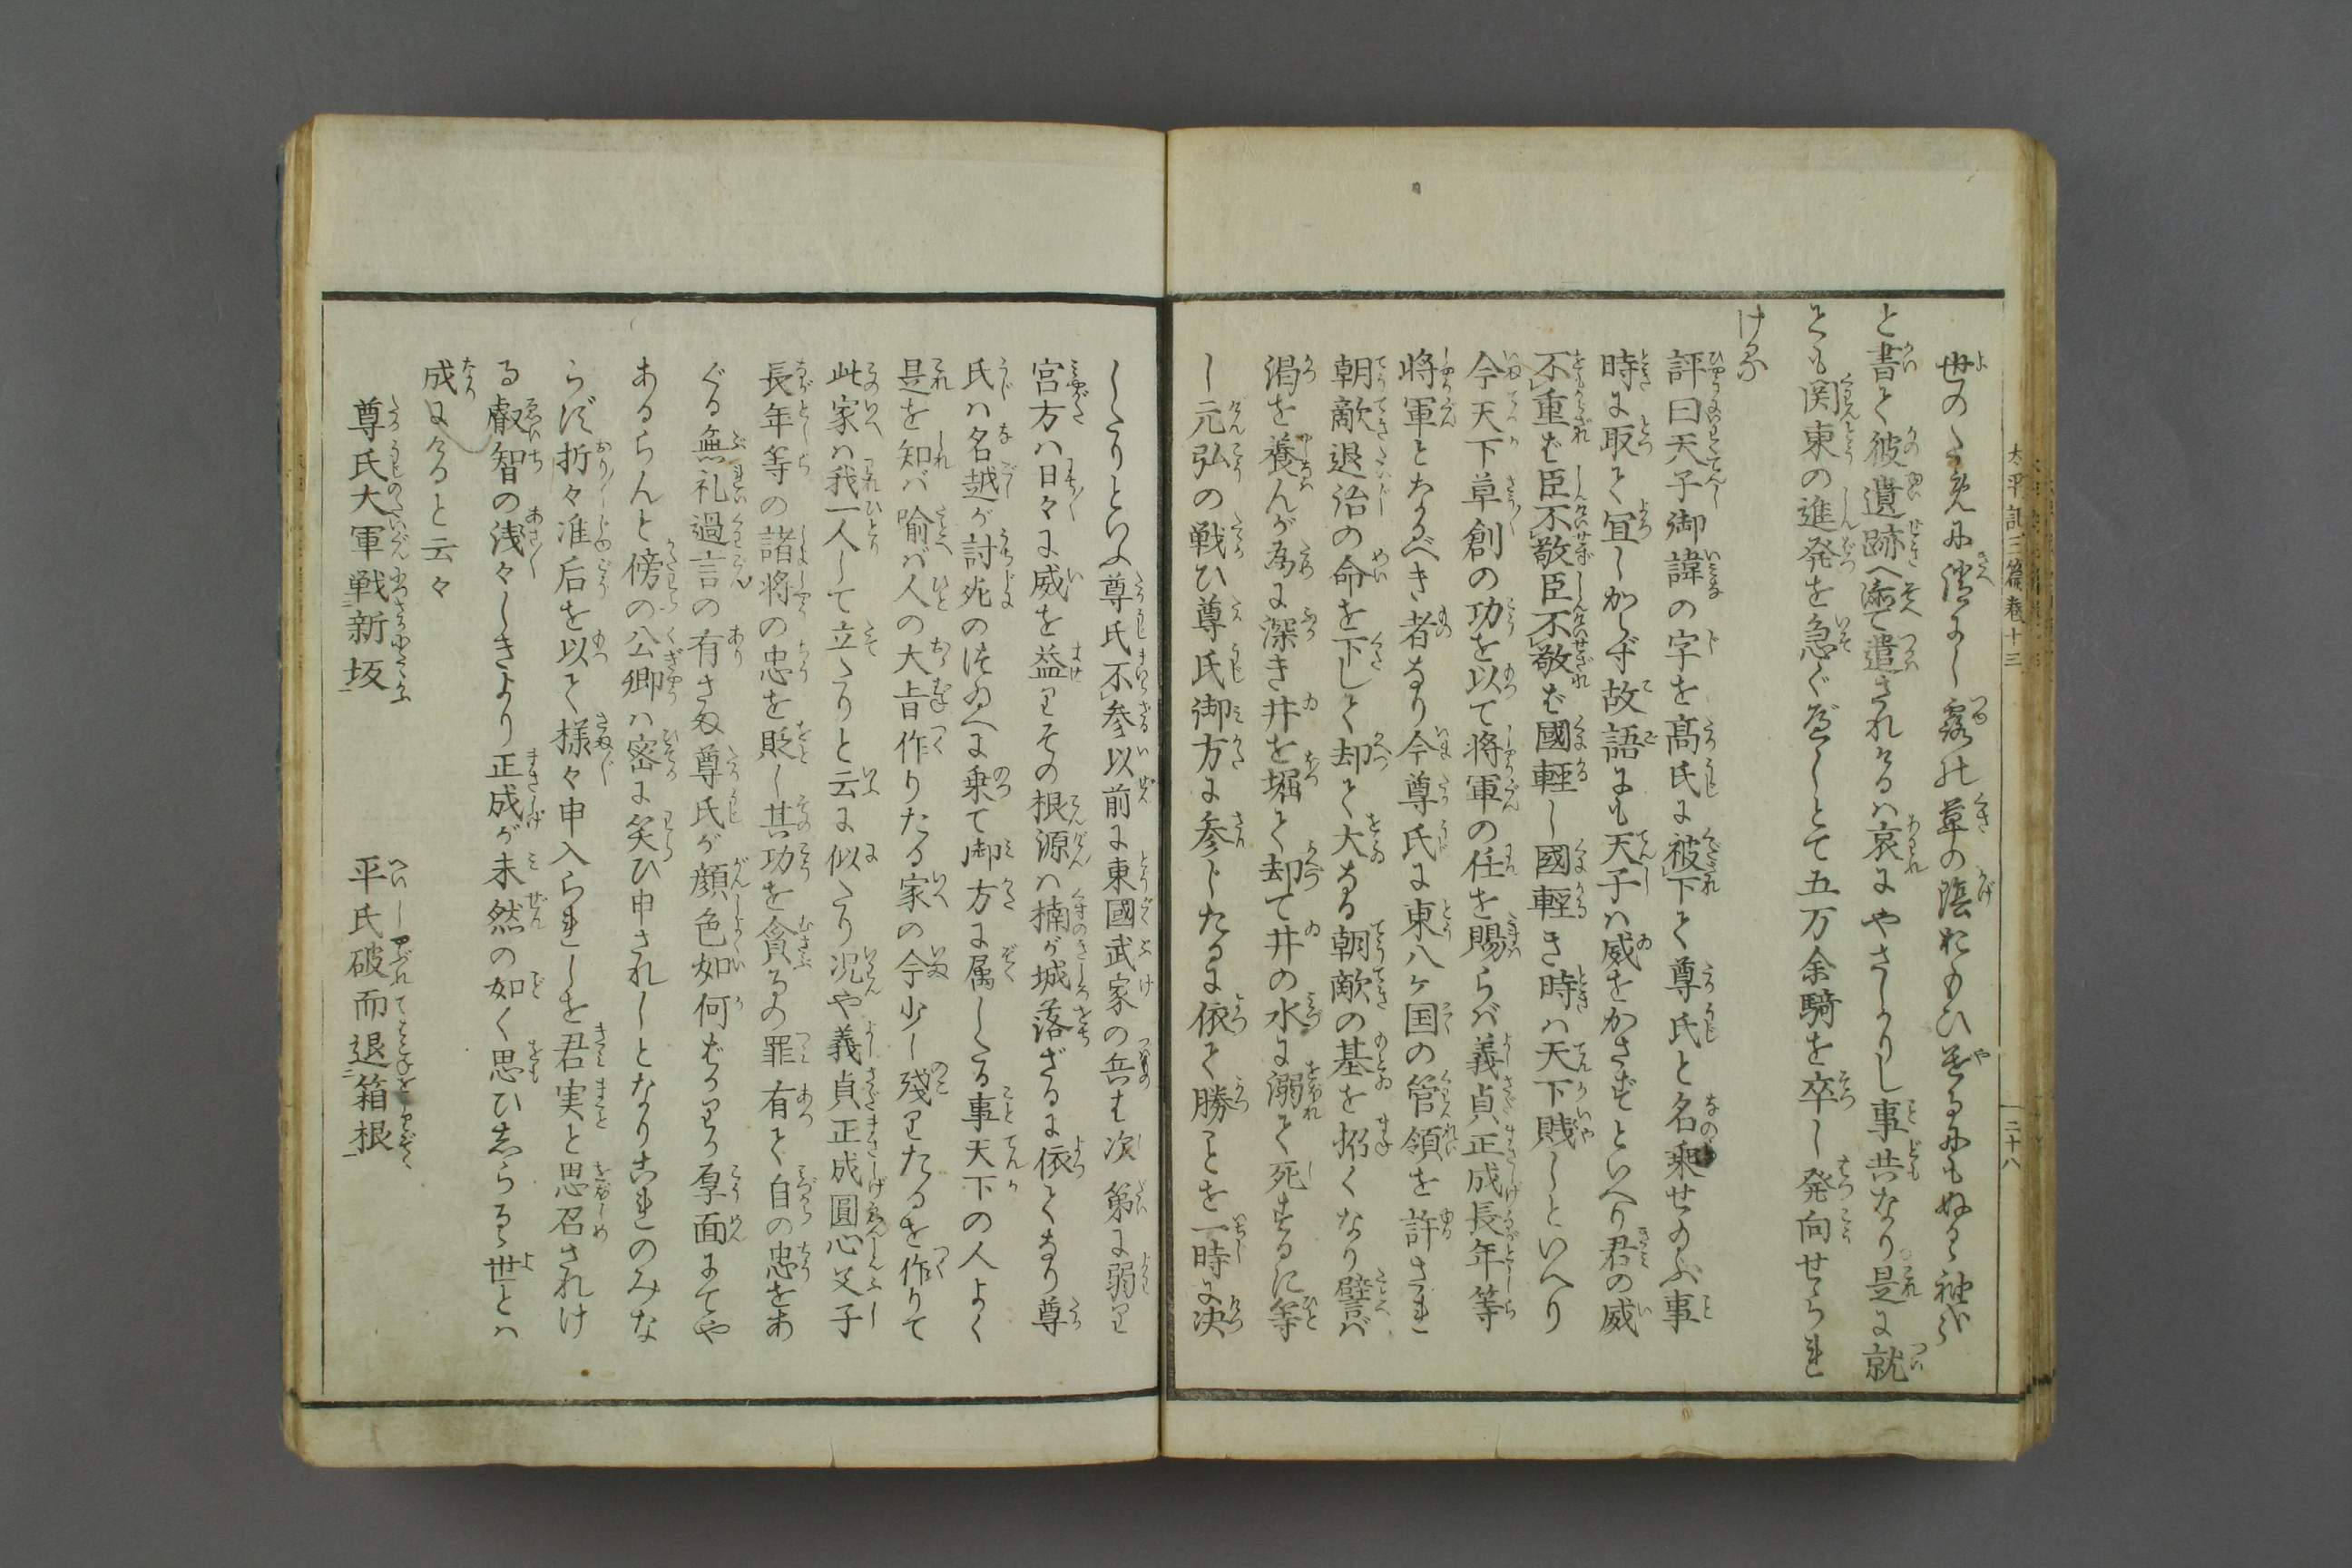 太平記三篇卷十三
二十八
世のため に消にし露の草の陰おもひやるにもぬるゝ袖哉
と書て彼遺跡へ添て遣されけるは哀にやさしかりし事共なり是に就
ても関東の進発を急ぐべしとて五万余騎を卒し発向せられ
ける
評曰天子御諱の字を高氏に被下て尊氏と名乗せ給ふ事
時に取て宜しからず故語にも天子は威をかさずといへり君の威
不重ば臣不敬臣不敬ば國輕し國輕き時は天下賎しといへり
今天下草創の功を以て将軍の任を賜らば義貞正成長年等
将軍となるべき者なり今尊氏に東八ケ国の管領を許され
朝敵退治の命を下して却て大なる朝敵の基を招くなり譬ば
渇を養んが為に深き井を堀て却て井の水に溺て死するに等
し元弘の戦ひ尊氏御方に参じたるに依て勝ことを一時に決
したりといふ尊氏不参以前に東國武家の兵は次第に弱り
宮方は日々に威を益りその根源は楠が城落ざるに依てなり尊
氏は名越が討死のつゐへに乗て御方に属したる事天下の人よく
是を知ば喩ば人の大旨作りたる家の今少し殘りたるを作りて
此家は我一人して立たりと云に似たり况や義貞正成圓心父子
長年等の諸将の忠を貶し其功を貪るの罪有て自の忠をあ
ぐる無礼過言の有さま尊氏が顔色如何ばかりか厚面にてや
あるらんと傍の公卿は密に笑ひ申されしとなりこれのみな
らず折々准后を以て様々申入られしを君実と思召されけ
る叡智の浅々しきより正成が未然の如く思ひしらるゝ世とは
成にけると云々
尊氏大軍戦新坂　平氏破而退箱根